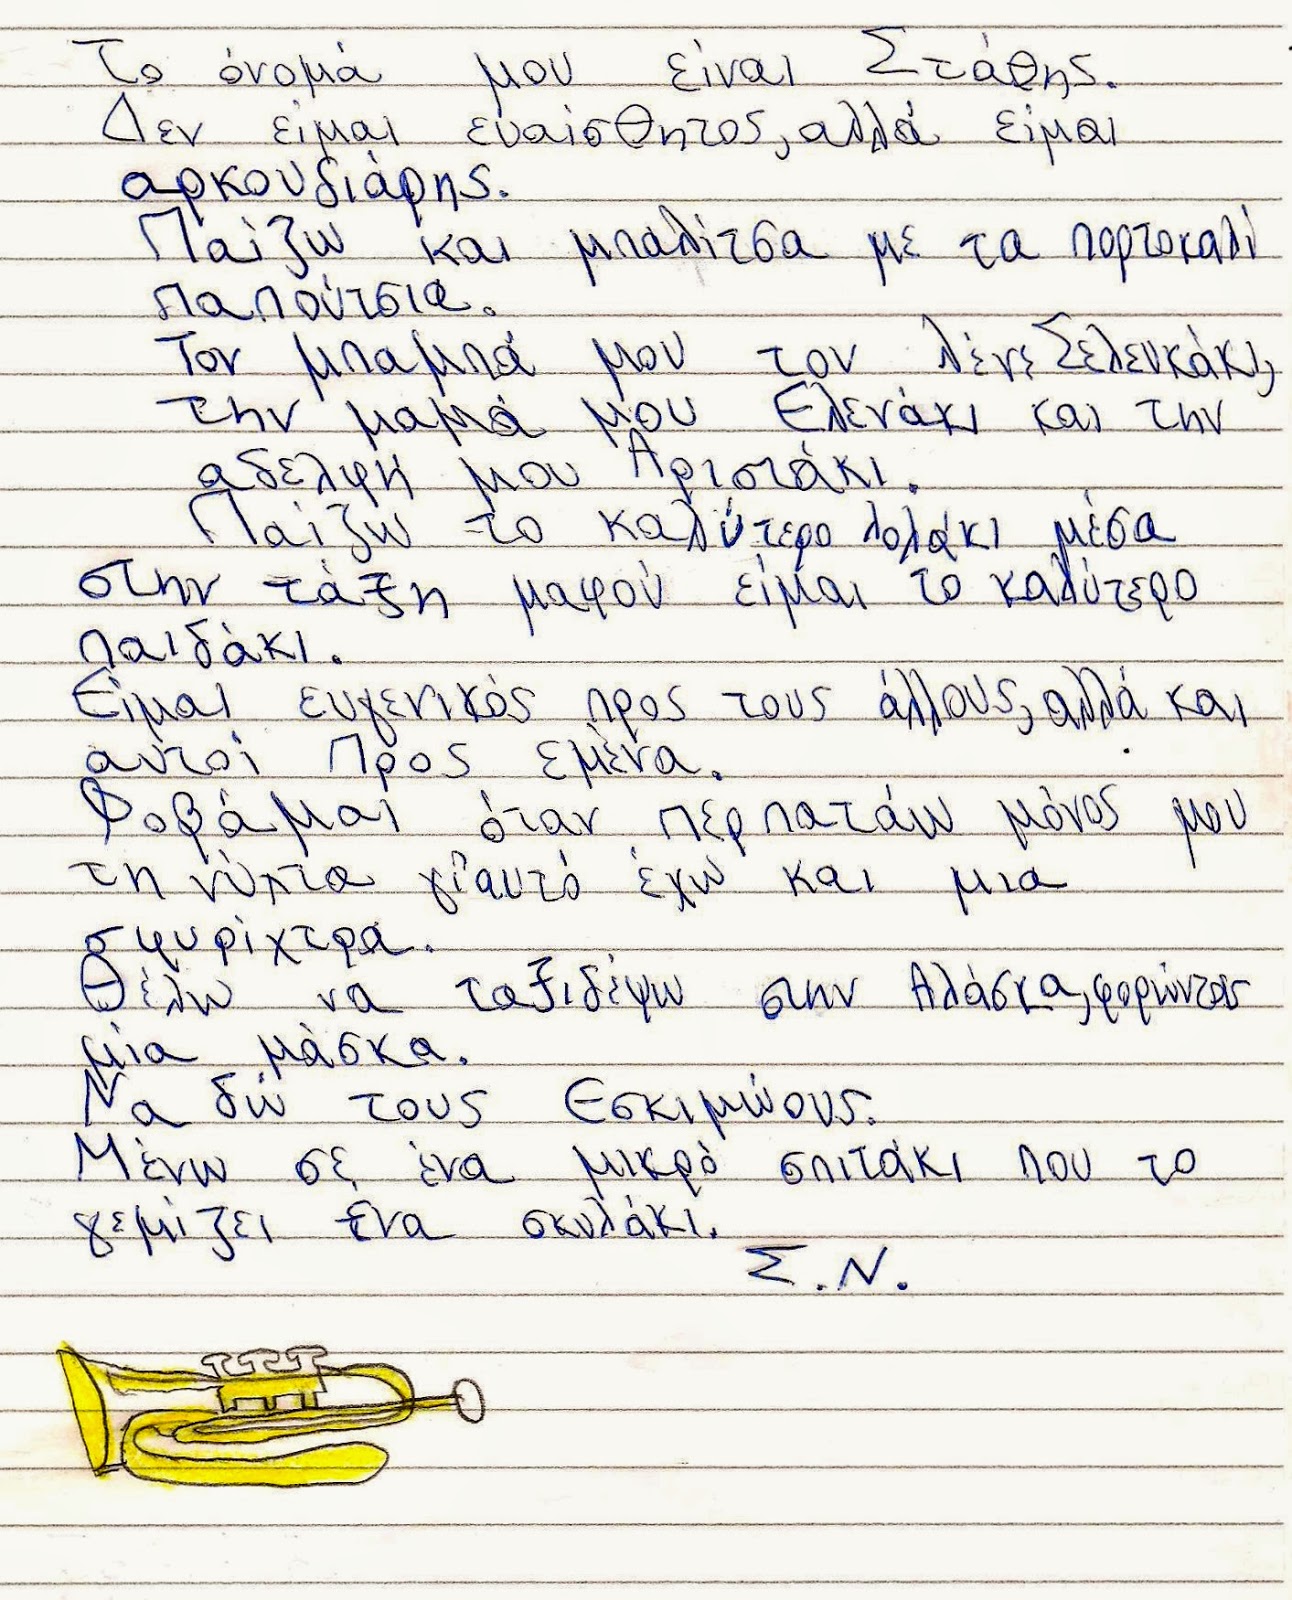 Το όνομά μου είναι Στάθης.
Δεν είμαι ευαίσθητος, αλλά είμαι
αρκουδιάρης.
Παίζω και μπαλίτσα με τα πορτοκαλί
παπούτσια.
Τον μπαμπά μου τον λένε Σελευκάκι,
την μαμά μου Ελενάκι και την
αδελφή μου Αριστάκι.
Παίζω το καλύτερο λολάκι μέσα
στην τάξη μαφού είμαι το καλύτερο
παιδάκι.
Είμαι ευγενικός προς τους άλλους, αλλά και
αυτοί Προς εμένα.
Φοβάμαι όταν περπατάω μόνος μου
τη νύπτα γι'αυτό έχω και μια
σφυρίχτρα.
Θέλω να ταξιδέψω στην Αλάσκα, φορώντας
μία μάσκα.
Να δώ τους Εσκιμώους.
Μένω σε ένα μικρό σπιτάκι που το
γεμίζει ένα σκυλάκι.
Σ.Ν.